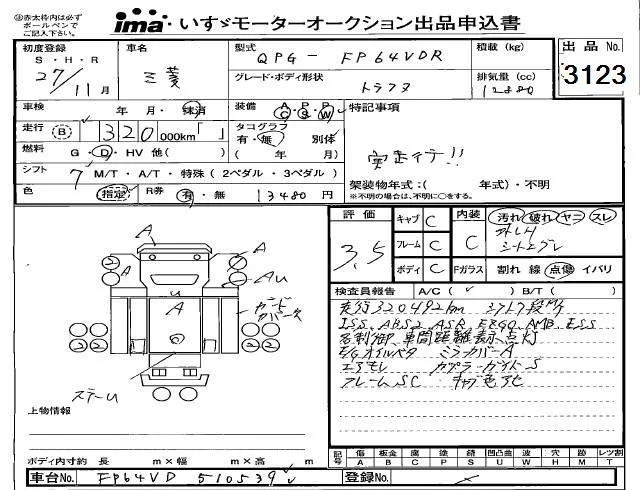 ※赤太枠内は必ず
ボールペンで
ご記入下さい。
ima いすゞモーターオークション出品申込書
初度登録 車名 型式 QPG- FP64VDR 積載 (kg) 出品 No.
S・H・R
27/11月 三菱 グレード・ボディ形状 トラクタ 排気量 (cc) 12880 3123
車検 年 月・抹消 装備 A・P・P C・S・W 特記事項
走行 B 320 000km「 」 タコグラフ 有・無 別体
燃料 G・D・HV 他( ) ( 年 月)
実走行デス!!
シフト 7 M/T・A/T・特殊 (2ペダル・3ペダル) 架装物年式:( 年式)・不明
※不明の場合は、不明に○をする。
色 指定 R券 有・無 13480 円
評価 キャブ C 内装 汚れ 破れ ヤニ スレ
3.5 フレーム C C
シートヨゴレ
ボディ C Fガラス 割れ 線 点傷 イバリ
検査員報告 A/C( ✓ ) B/T( )
実行320492km シフト7段M/T
ISS.ABS2.ASR.EZGO.AMB.ESS
車間距離表示点灯
E/Gオイルモレ ミラーカバーA
エアモレ カプラーガイドS
フレームSC キャブ色アセ
A
A
A
AU
A
サイドカバー欠
2 2
2 2
2 2
スチール
上物情報
記号 傷 板金 腐 塗 錆 凹凸曲 波 穴 跡 レツ割
A B C P S U W H M T
ボディ内寸約 長 m×幅 m×高 m
車台No. FP64VD 510539 登録No.